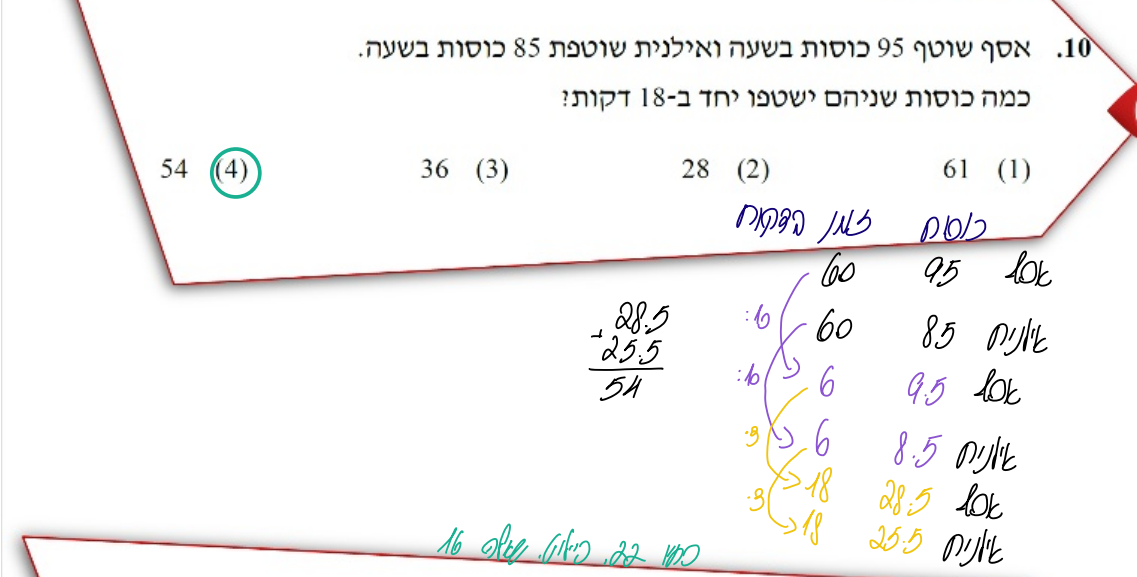 10. אסף שוטף 95 כוסות בשעה ואילנית שוטפת 85 כוסות בשעה.
כמה כוסות שניהם ישטפו יחד ב-18 דקות?
(1) 61 (2) 28 (3) 36 (4) 54
כוסות זמן בדקות
אסף 95 60
אילנית 85 60 :10
אסף 9.5 6 :10
אילנית 8.5 6 ·3
אסף 28.5 18 ·3
אילנית 25.5 18
28.5
+
25.5
54
22, שאלה 16